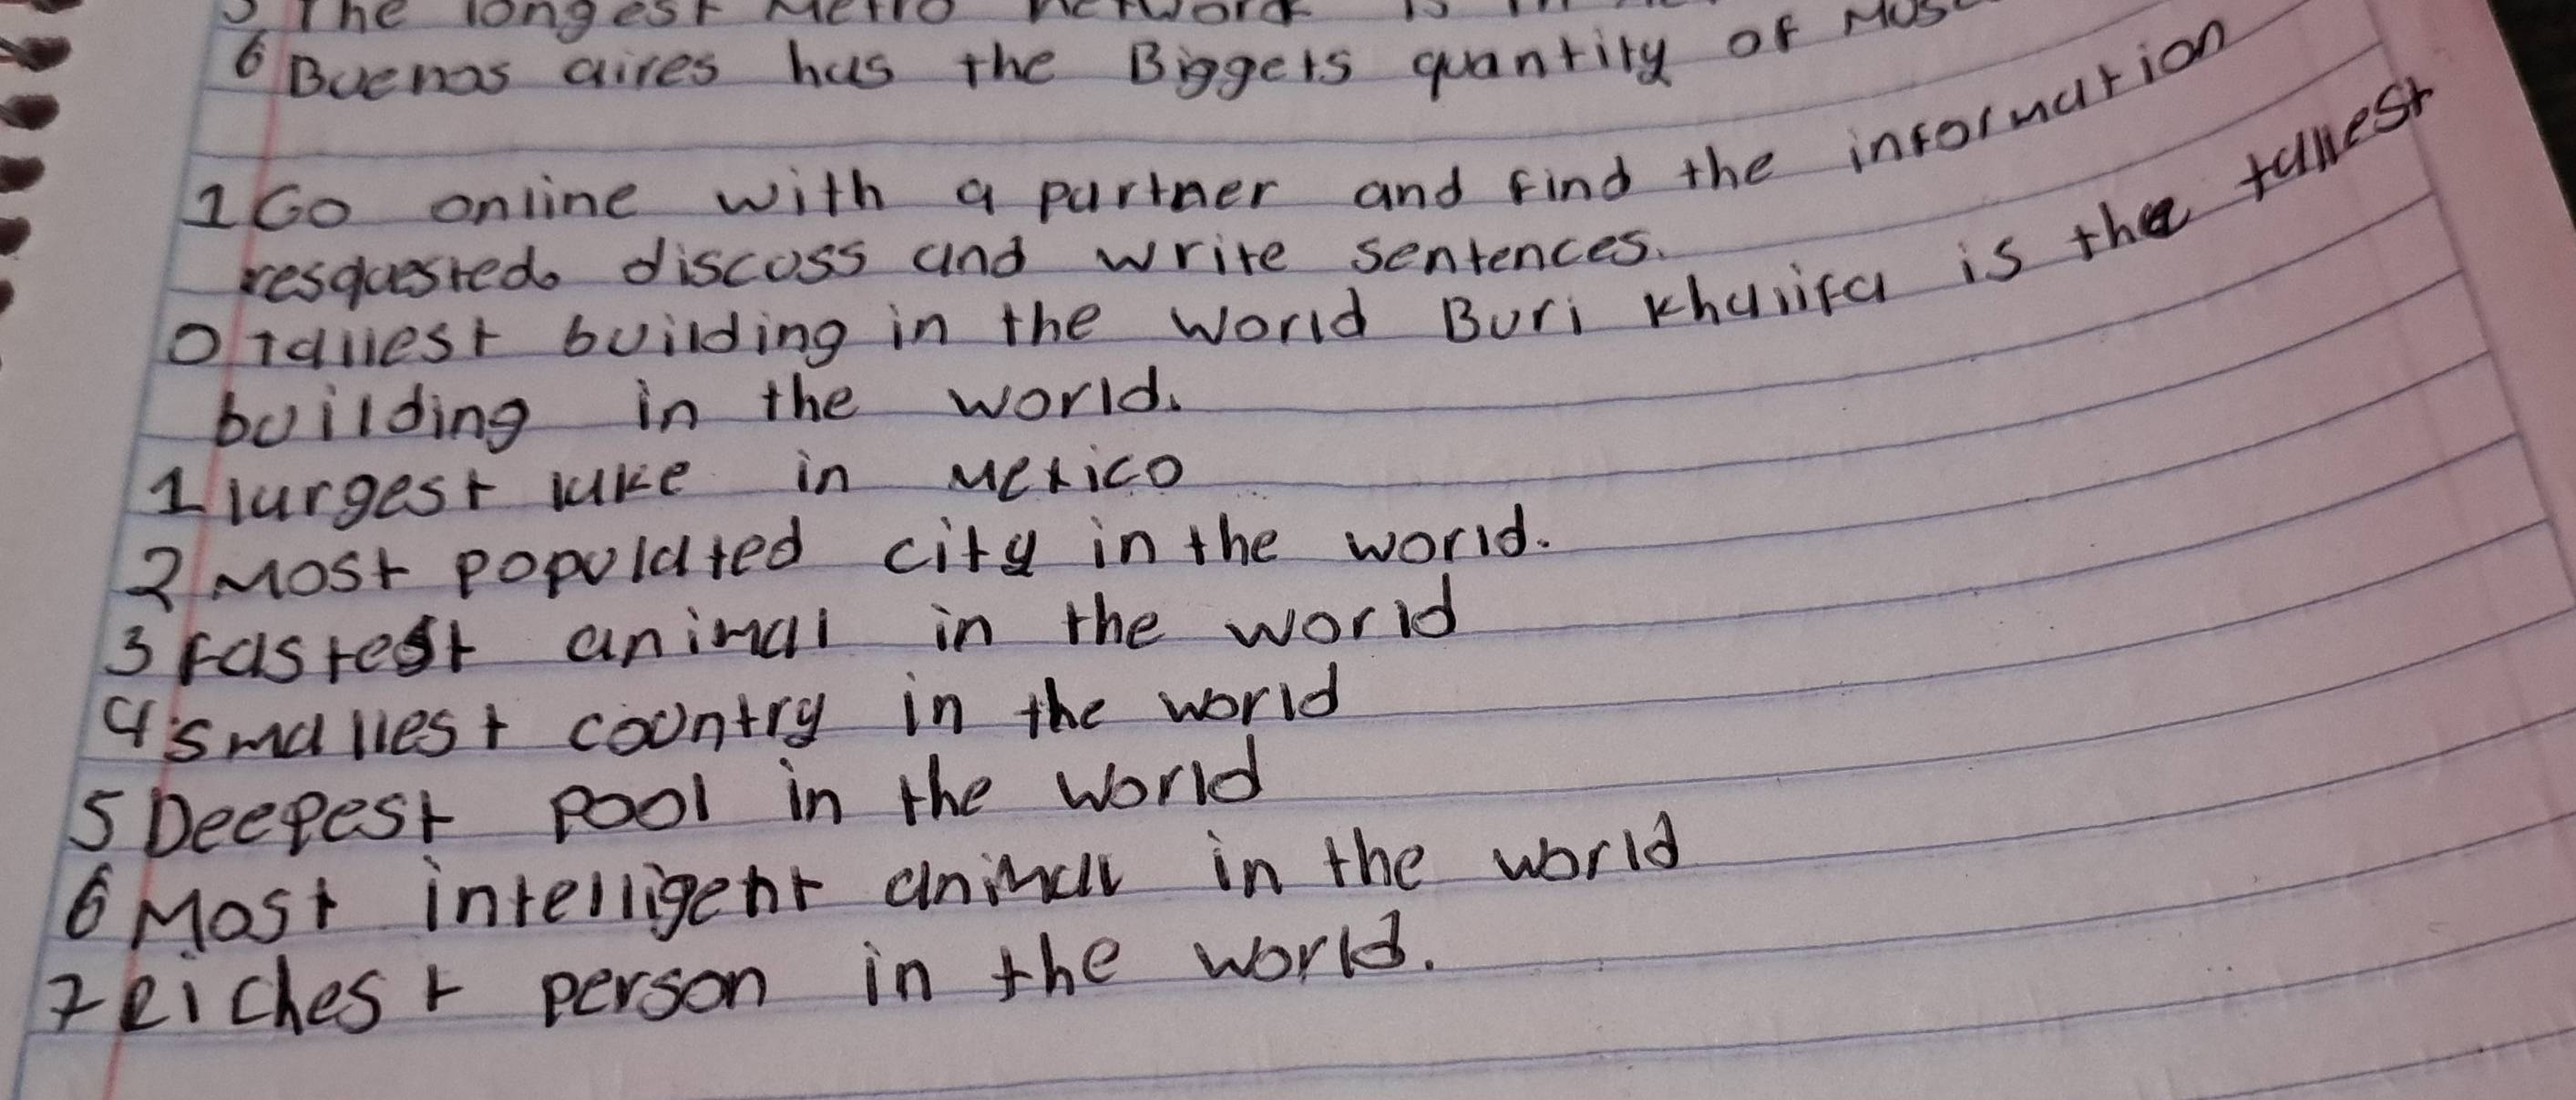 5 The longest Metro network is in
6 Buenos aires has the Biggets quantity of
1 Go online with a partner and find the information
resquested. discuss and write sentences.
0 Tallest building in the world Buri Khalifa is the tallest
building in the world.
1 largest lake in Mexico
2 Most populated city in the world.
3 fastest animal in the world
4 smallest country in the world
5 Deepest pool in the world
6 Most intelligent animal in the world
7 Richest person in the world.